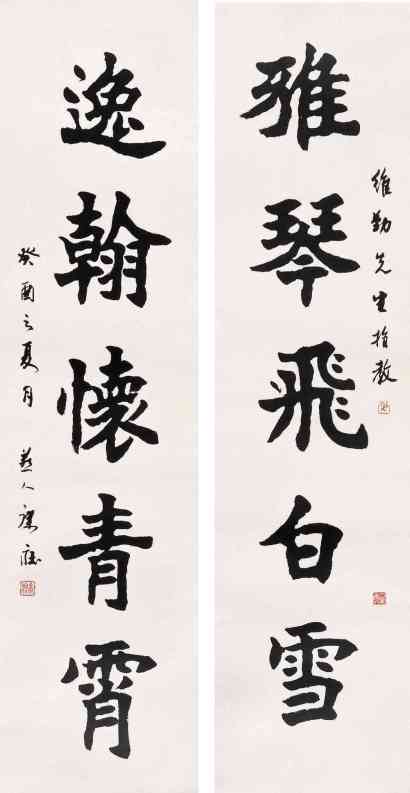 維勤先生指教
雅琴飛白雪
逸翰懷青霄
癸酉之夏月 燕人